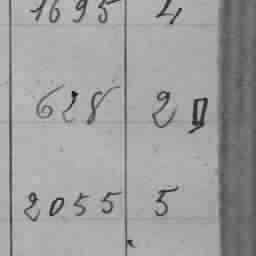 1695 4
628 2
2055 5